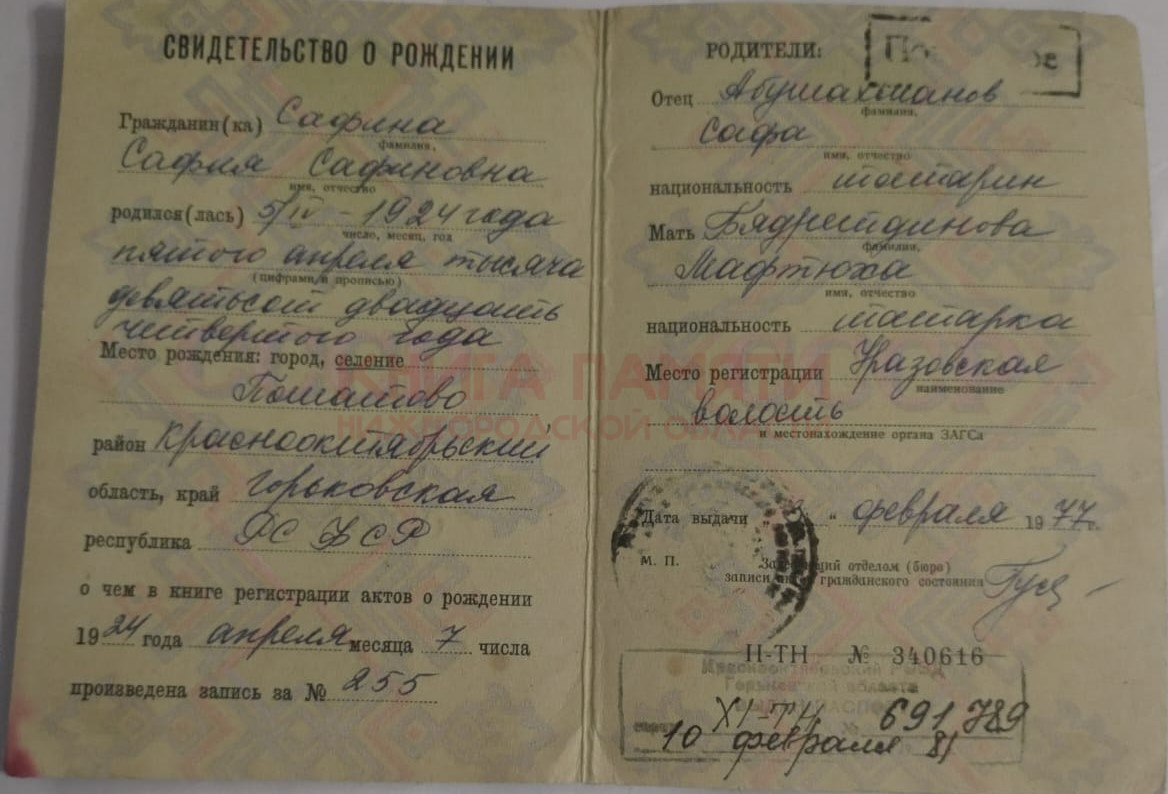 СВИДЕТЕЛЬСТВО О РОЖДЕНИИ
Гражданин(ка) Сафина
фамилия,
Сафия Сафиновна
имя, отчество
родился(лась) 5/IV - 1924 года
число, месяц, год
пятого апреля тысяча
(цифрами и прописью)
девятьсот двадцать
четвертого года
Место рождения: город, селение
Пошатово
район Краснооктябрьский
область, край Горьковская
республика РСФСР
о чем в книге регистрации актов о рождении
1924 года апреля месяца 7 числа
произведена запись за № 255
РОДИТЕЛИ:
Отец Абушахманов
фамилия,
Сафа
имя, отчество
национальность татарин
Мать Бядретдинова
фамилия,
Мафтюха
имя, отчество
национальность татарка
Место регистрации Уразовская
наименование
волость
и местонахождение органа ЗАГСа
Дата выдачи " февраля 1977 г.
М. П.
отделом (бюро)
записи гражданского состояния
II-ТН № 340616
Краснооктябрьский РОВД
Горьковской области
XI-ТН 691789
10 февраля 81
КНИГА ПАМЯТИ
НИЖЕГОРОДСКОЙ ОБЛАСТИ